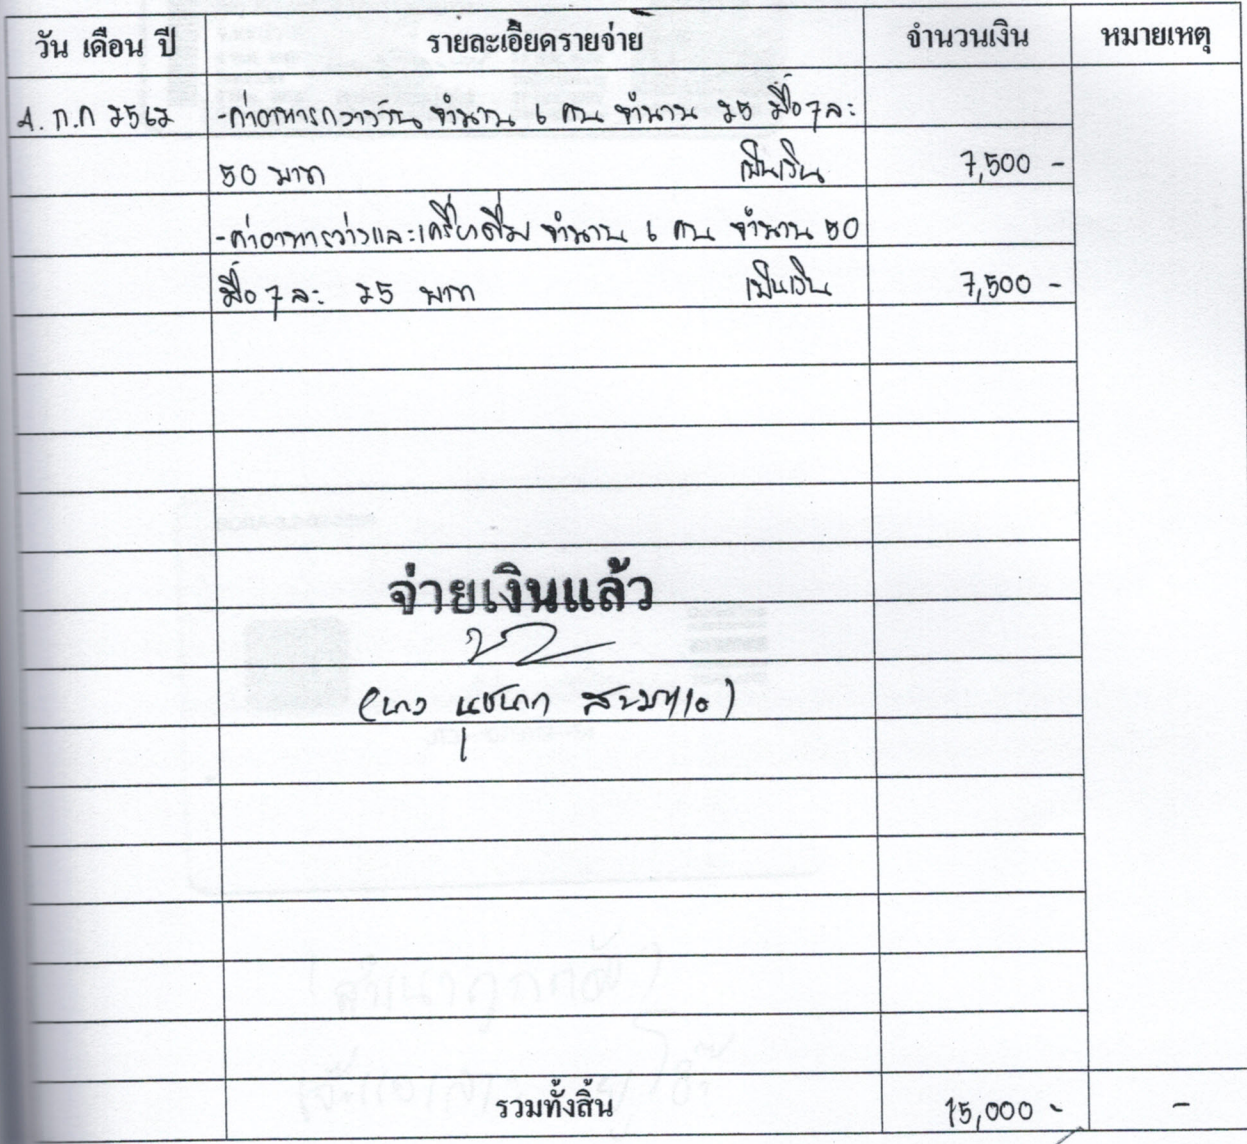 วัน เดือน ปี รายละเอียดรายจ่าย จำนวนเงิน หมายเหตุ
4. ก.ค 2562 -ค่าอาหารกลางวัน จำนวน 6 คน จำนวน 25 มื้อๆละ
50 บาท เป็นเงิน 7,500 -
-ค่าอาหารว่างและเครื่องดื่ม จำนวน 6 คน จำนวน 50
มื้อๆละ 25 บาท เป็นเงิน 7,500 -
จ่ายเงินแล้ว
(นาง
รวมทั้งสิ้น 15,000 - -